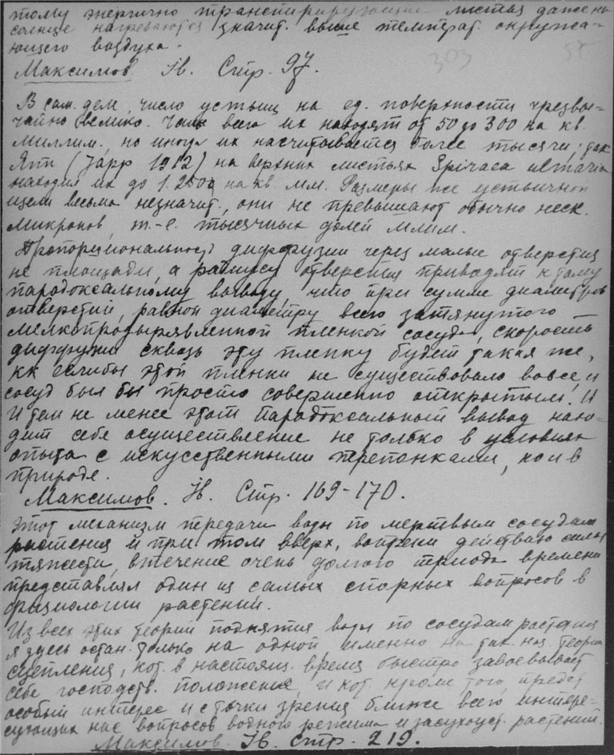 тому энергично транспирирующие листья даже на
солнце нагреваются значит. выше температ. окружа-
ющего воздуха.
Максимов Iв. Стр. 97.
303
В сам. деле, число устьиц на ед. поверхности чрезвы-
чайно велико. Чаще всего их находят от 50 до 300 на кв.
миллим., но иногда их насчитывается более тысячи; так
Япп (Yapp 1912) на верхних листьях Spiraea
находил их до 1.250 на кв. мм. Размеры же устьичной
щели весьма незначит., они не превышают обычно неск.
микронов, т.-е. тысячных долей млим.
Пропорциональность диффузии через малые отверстия
не площади, а радиусу отверстия приводит к тому
парадоксальному выводу, что при сумме диаметров
отверстий, равной диаметру всего затянутого
мелкопродырявленной пленкой сосуда, скорость
диффузии сквозь эту пленку будет такая же,
как если бы этой пленки не существовало вовсе, и
сосуд был бы просто совершенно открытым. И
и тем не менее этот парадоксальный вывод нахо-
дит себе осуществление не только в условиях
опыта с искусственными перепонками, но и в
природе.
Максимов. Iв. Стр. 169-170.
Этот механизм передачи воды по мертвым сосудам
растения и при том вверх, вопреки действию силы
тяжести, в течение очень долгого периода времени
представлял один из самых спорных вопросов в
физиологии растений.
Из всех этих теорий поднятия воды по сосудам растения
я здесь остан. только на одной, именно на так наз. теории
сцепления, кот. в настоящ. время быстро завоевывает
себе господств. положение, и кот. кроме того, предст.
особый интерес и с точки зрения ближе всего интере-
сующих нас вопросов водного режима и засухоуст. растений.
Максимов Iв. стр. 219.